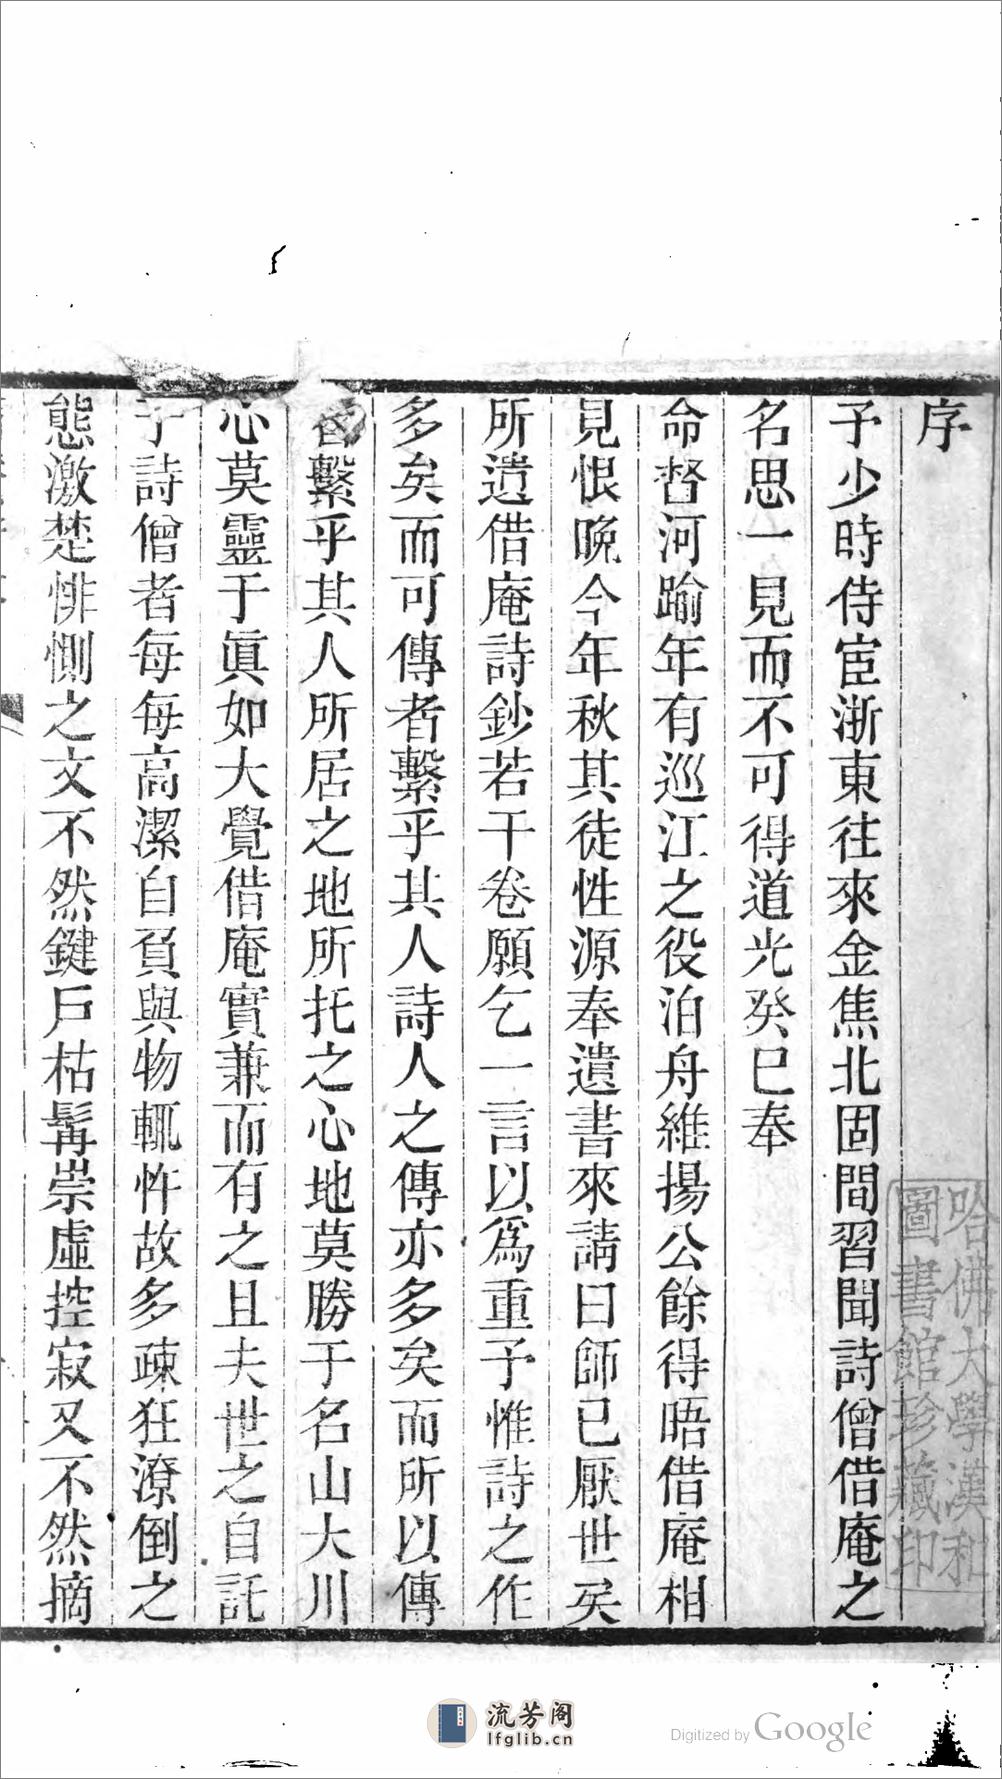 序
予少時侍宦浙東往來金焦北固間習聞詩僧借庵之
名思一見而不可得道光癸巳奉
命督河踰年有巡江之役泊舟維揚公餘得晤借庵相
見恨晚今年秋其徒性源奉遺書來請曰師已厭世矣
所遺借庵詩鈔若干卷願乞一言以爲重予惟詩之作
多矣而可傳者繫乎其人詩人之傳亦多矣而所以傳
者繫乎其人所居之地所托之心地莫勝于名山大川
心莫靈于眞如大覺借庵實兼而有之且夫世之自託
于詩僧者每每高潔自負與物輒忤故多疎狂潦倒之
態激楚悱惻之文不然鍵戶枯髯崇虛控寂又不然摘
哈佛大學漢和
圖書館珍藏印
流芳阁
lfglib.cn
Digitized by Google